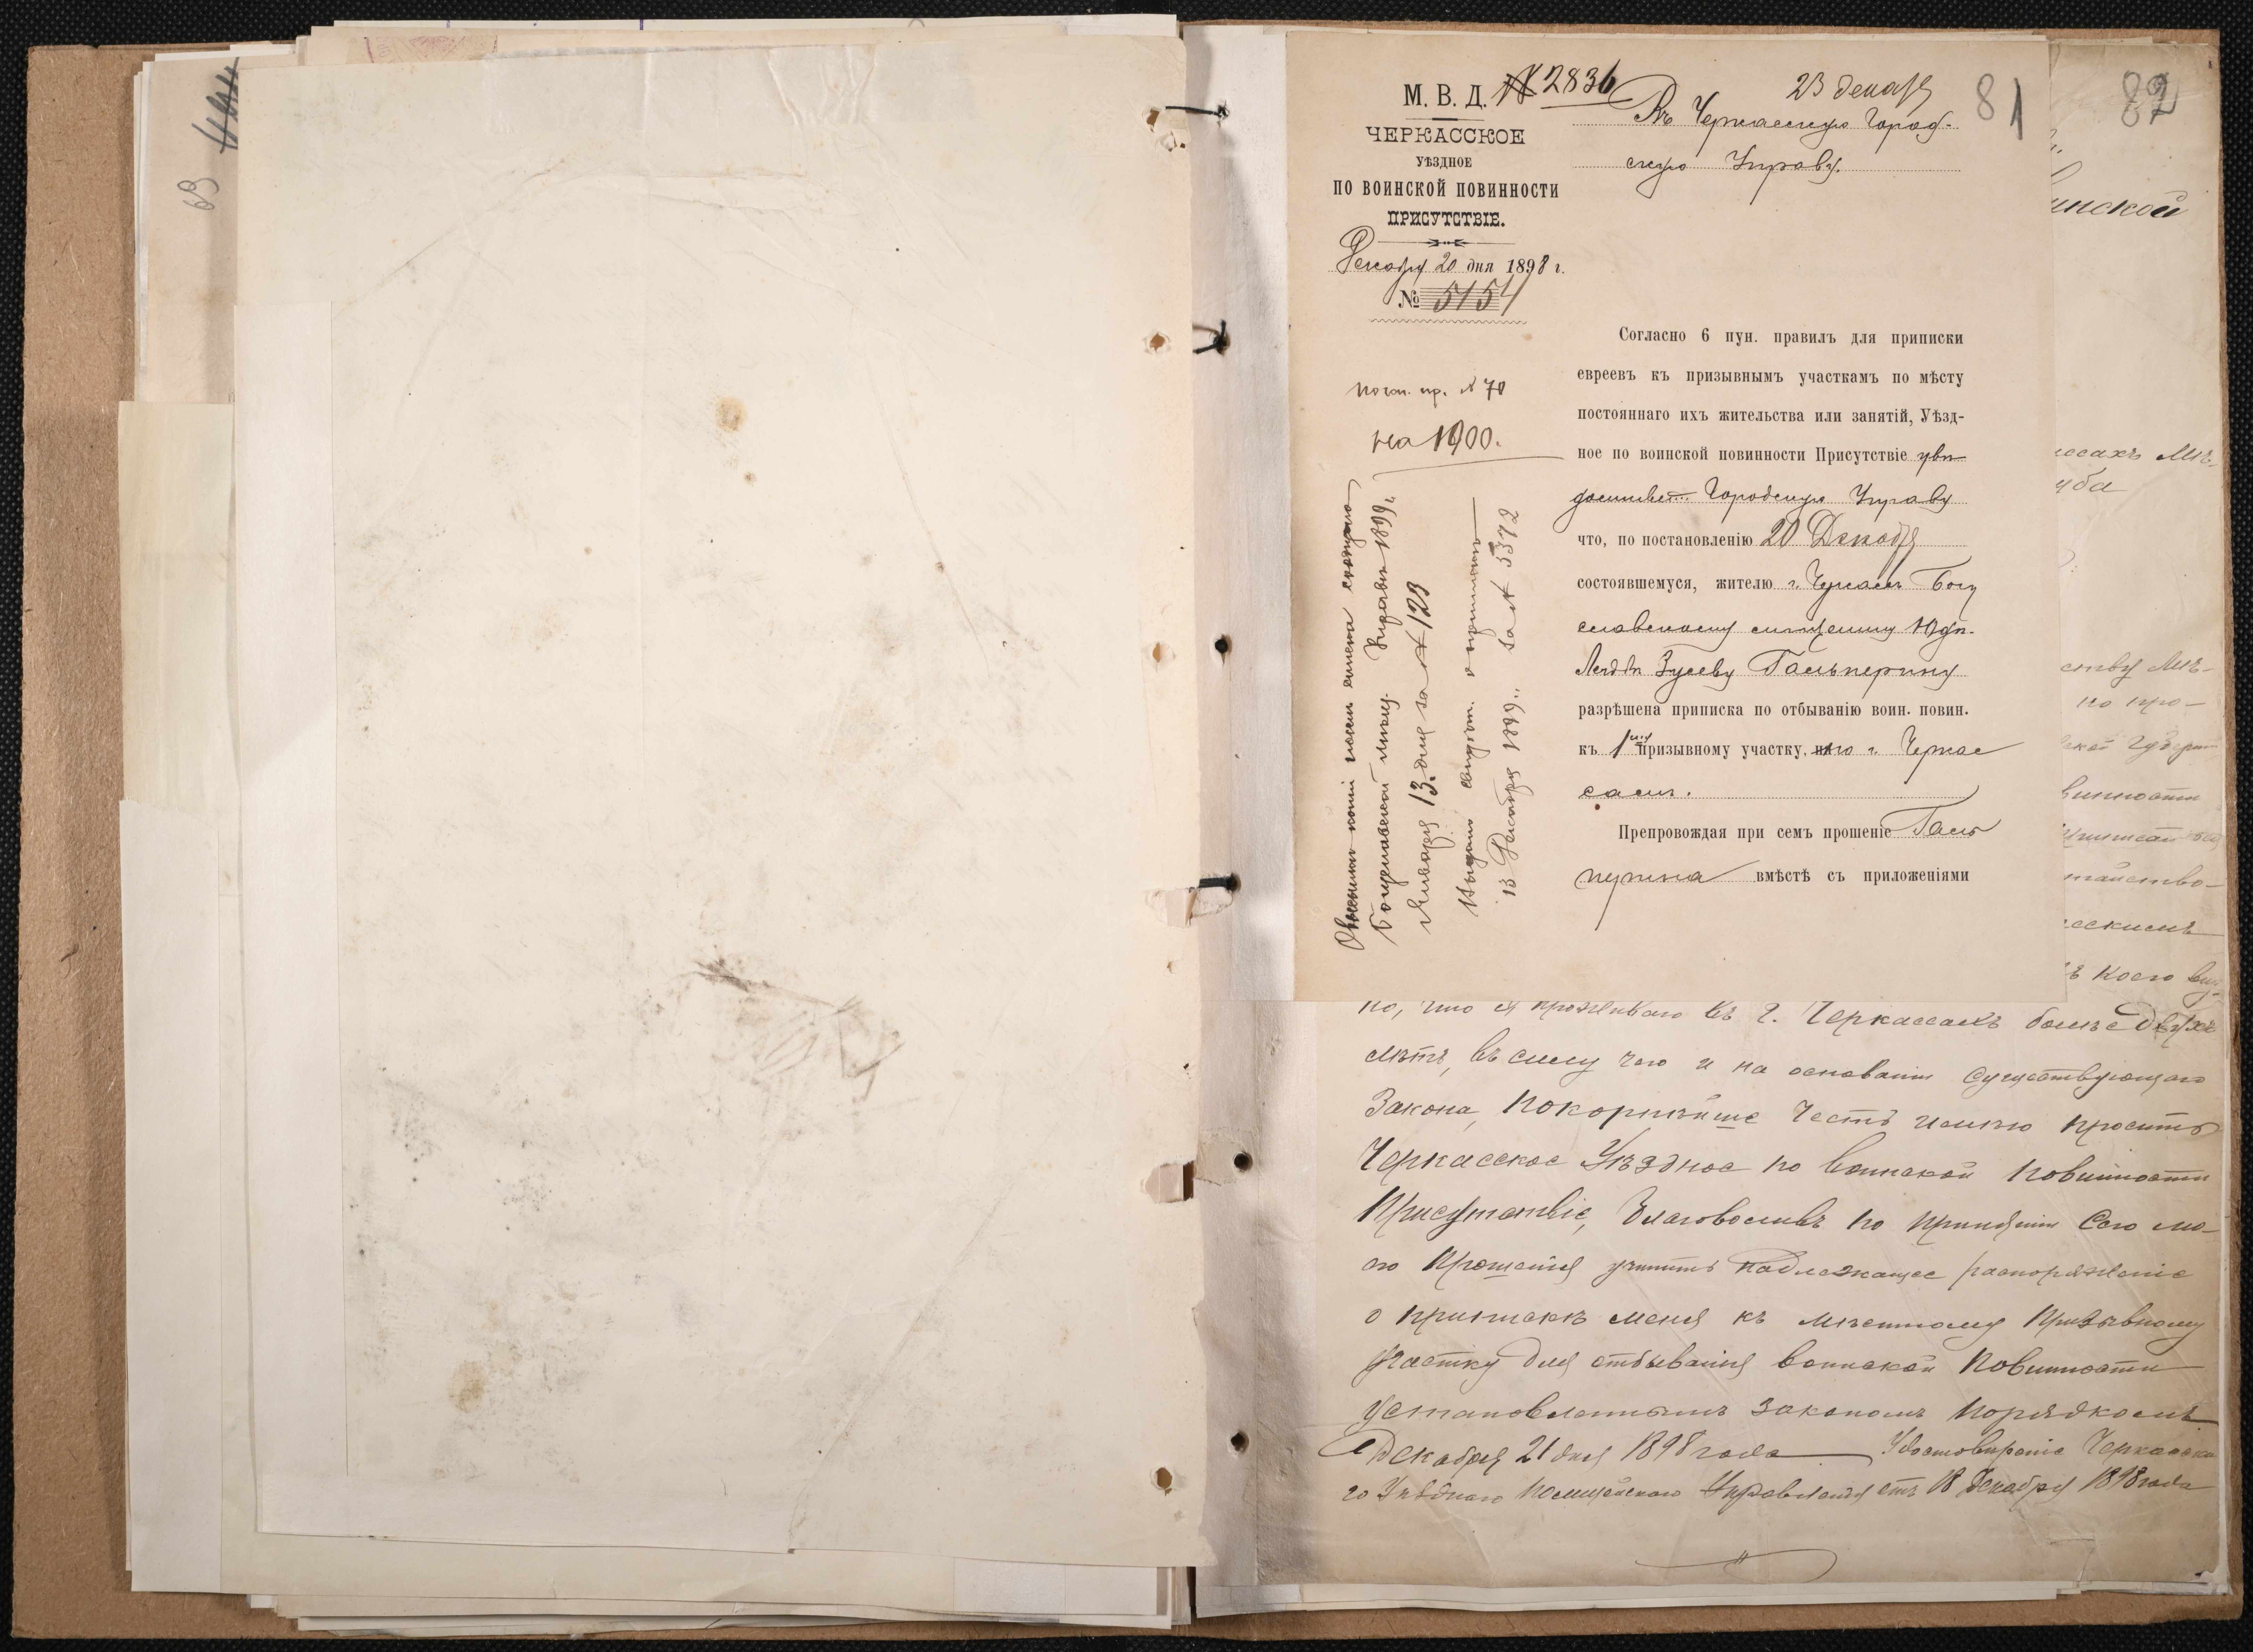 М. В. Д.
ЧЕРКАССКОЕ
УѢЗДНОЕ
ПО ВОИНСКОЙ ПОВИННОСТИ
ПРИСУТСТВІЕ.
Декабря 20 дня 1898 г.
№ 5154
№ 2836
23 декабря
81
Въ Черкасскую Город-
скую Управу.
пр. № 70
на 1900.
Согласно 6 пун. правилъ для приписки
евреевъ къ призывнымъ участкамъ по мѣсту
постояннаго ихъ жительства или занятій, Уѣзд-
ное по воинской повинности Присутствіе увѣ
домляет Городскую Управу
что, по постановленію 20 Декабря
состоявшемуся, жителю г. Черкасъ Богу
славскому мѣщанину
Зусеву Гальперину
разрѣшена приписка по отбыванію воин. повин.
къ 1му призывному участку, г. Черкас
самъ.
Препровождая при семъ прошеніе Галь
перина вмѣстѣ съ приложеніями
Управѣ 1899 г.
Января 13 дня за № 123
13 Декабря 1899 г. за № 5372
82
инской
ссахъ Мѣ-
ству Мѣ-
по про-
ской Губерн
винности
сскимъ
ъ коего вид-
но, что я проживаю въ г. Черкассахъ болѣе двухъ
лѣтъ, въ силу чего и на основаніи существующаго
Закона, покорнѣйше честь имѣю просить
Черкасское Уѣздное по воинской повинности
Присутствіе, благоволивъ по принятіи сего мо-
го прошенія учинить надлежащее распоряженіе
о припискѣ меня къ мѣстному призывному
участку для отбыванія воинской повинности
установленнымъ закономъ порядкомъ
Декабря 21 дня 1898 года Удостовѣреніе Черкасска
го Уѣзднаго Полицейскаго Управленія отъ 18 Декабря 1898 года